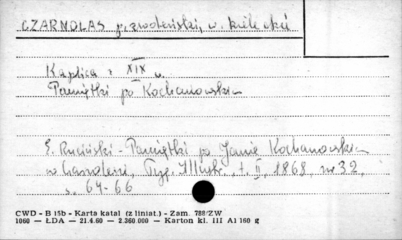 CZARNOLAS p. zwoleński, w. kieleckie
Kaplica z XIX w.
Pamiątki po Kochanowskim
E. Ruciński - Pamiątki po Janie Kochanowskim
w Czarnolesie, Tyg. Illustr., t. II, 1868, nr 32,
s. 64-66
CWD - B 15b - Karta katal (z liniat.) - Zam. 788/ZW
1060 — ŁDA — 21.4.60 — 2.360.000 — Karton kl. III A1 160 g